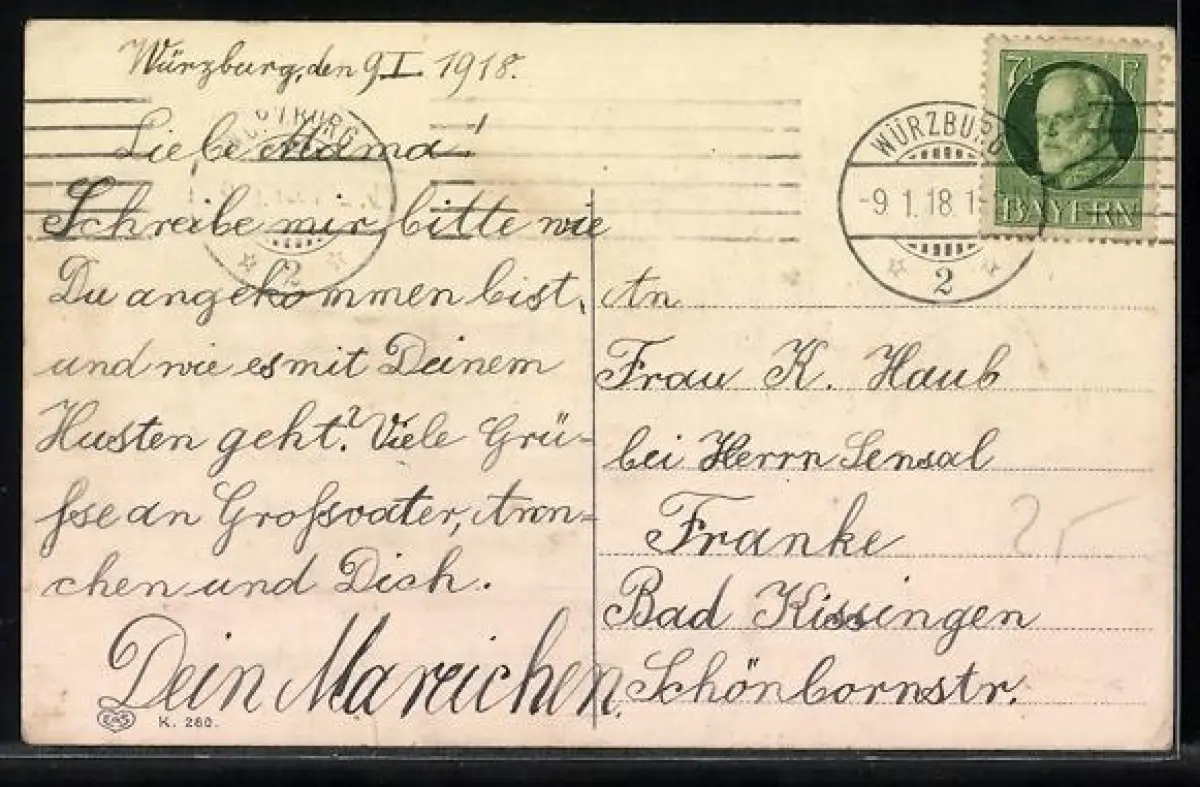 Würzburg, den 9. I. 1918.
Liebe Mama!
Schreibe mir bitte wie
Du angekommen bist,
und wie es mit Deinem
Husten geht? Viele Grü-
sse an Grossvater, 
chen und Dich.
Dein Mareichen.
K. 260.
7½ P.
BAYERN
WÜRZBURG
-9.1.18.1-
2
WÜRZBURG
2
An
Frau K. Haub
bei Herrn Sensal
Franke
Bad Kissingen
Schönbornstr.
25